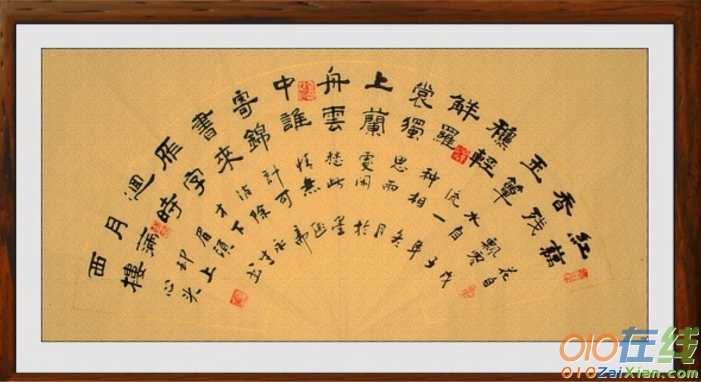 紅藕
香残
玉簟
穐輕
解羅
裳獨
上蘭
舟雲
中誰
寄錦
書來
雁字
迴時
月滿
西樓
花自
飄零
水自
流一
种相
思兩
處閑
愁此
情無
計可
消除
才下
眉頭
却上
心头
戊子年冬月於墨
010在线
010ZaiXian.com